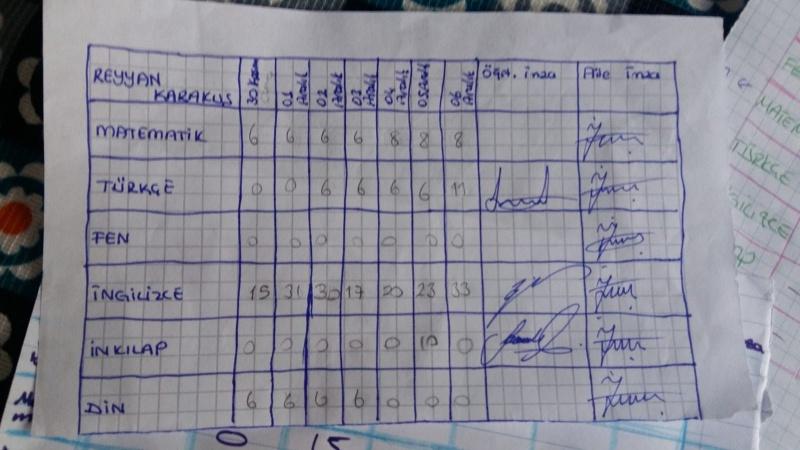 REYYAN KARAKUŞ 30 Kasım 01 Aralık 02 Aralık 03 Aralık 04 Aralık 05 Aralık 06 Aralık Öğrt. imza Aile imza
MATEMATİK 6 6 6 6 8 8 8
TÜRKÇE 0 0 6 6 6 6 11
FEN 0 0 0 0 0 0 0
İNGİLİZCE 15 31 30 17 20 23 33
İNKILAP 0 0 0 0 0 10 0
DİN 6 6 6 6 0 0 0
0 15